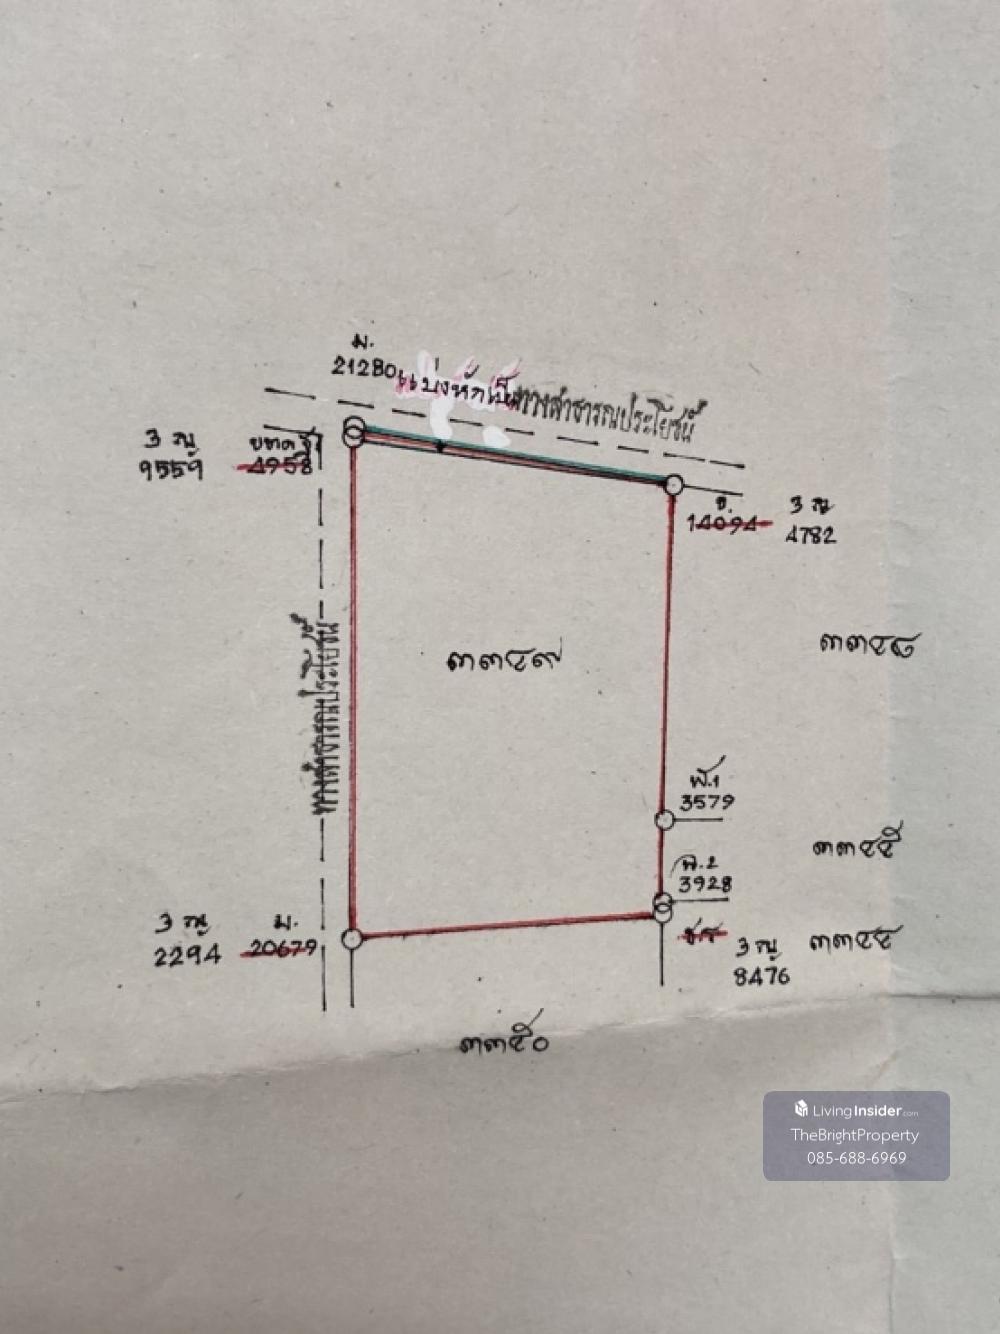 ม.
21280
แบ่งหักเป็นทางสาธารณประโยชน์
3 ณ
9559
4958
ข.
14094
3 ณ
4782
๓๓๔๙
๓๓๔๘
ทางสาธารณประโยชน์
พ.1
3579
๓๓๔๕
พ.2
3928
3 ณ
2294
ม.
20679
3 ณ
8476
๓๓๔๔
๓๓๕๐
LivingInsider.com
TheBrightProperty
085-688-6969